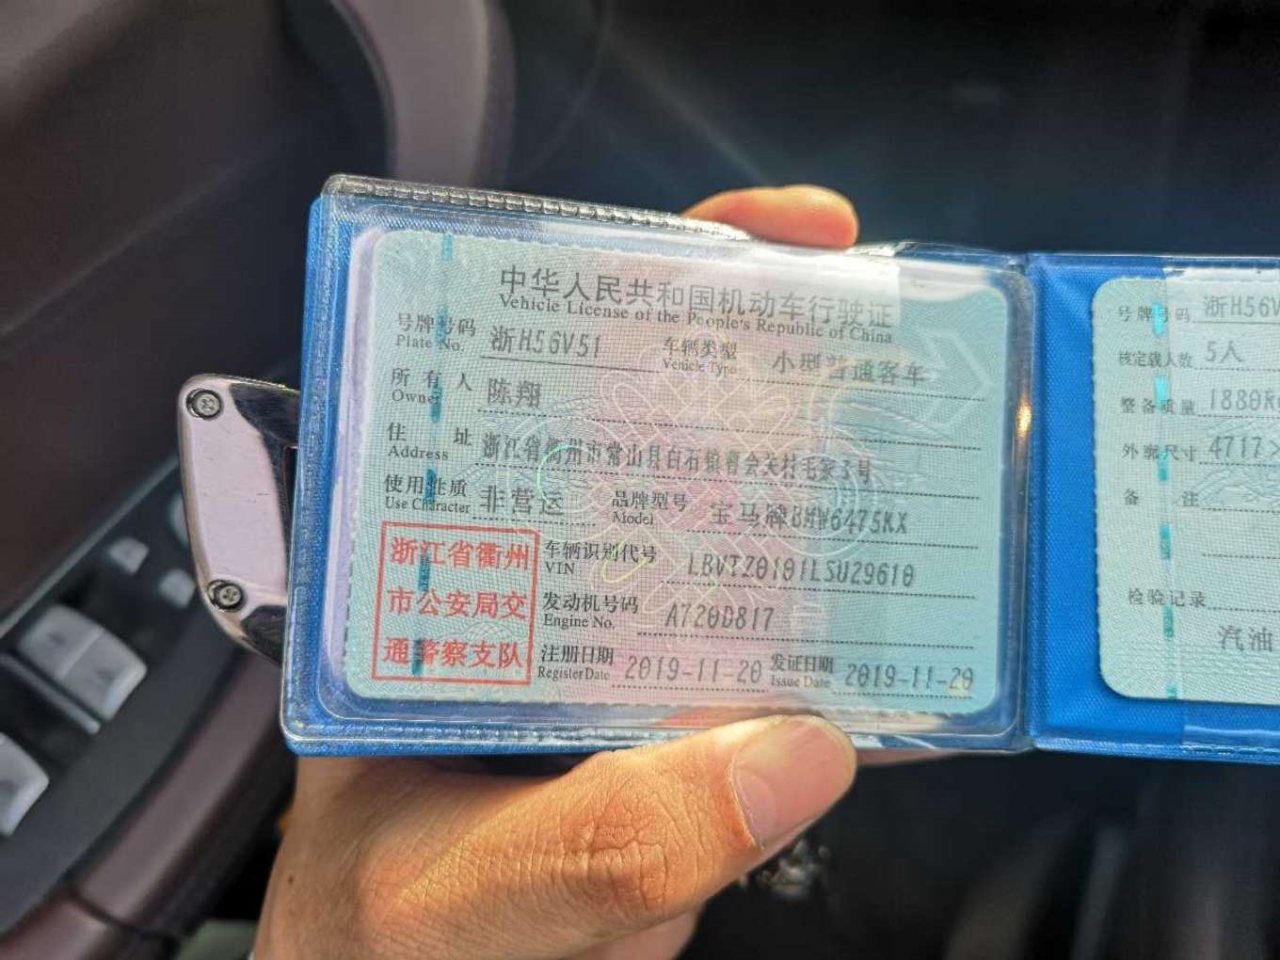 中华人民共和国机动车行驶证
Vehicle License of the People's Republic of China
号牌号码 浙H56V51 车辆类型 小型普通客车
Plate No. Vehicle Type
所有人 陈翔
Owner
住址 浙江省衢州市常山县白石镇曹会关村毛家3号
Address
使用性质 非营运 品牌型号 宝马牌BMW6475KX
Use Character Model
浙江省衢州
市公安局交
通警察支队
车辆识别代号 LBVTZ0101LSU29610
VIN
发动机号码 A720D817
Engine No.
注册日期 2019-11-20 发证日期 2019-11-20
Register Date Issue Date
号牌号码 浙H56V
核定载人数 5人
整备质量 1880K
外廓尺寸 4717×
备注
检验记录
汽油